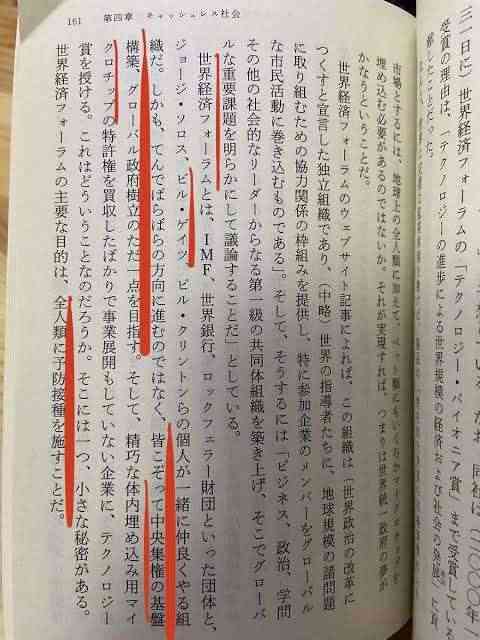 161　第四章　キャッシュレス社会
三一日に）世界経済フォーラムの「テクノロジー・パイオニア賞」まで受賞してい
受賞の理由は、「テクノロジーの進歩による世界規模の経済および社会の発展」に貢
献したことだった。
市場とするには、地球上の全人類に加えて、ペット類にもいくらかマイクロチップを
埋め込む必要があるのではないか。それが実現すれば、つまりは世界統一政府の夢が
かなうということだ。
世界経済フォーラムのウェブサイト記事によれば、この組織は「世界政治の改革に
つくすと宣言した独立組織であり、（中略）世界の指導者たちに、地球規模の諸問題
に取り組むための協力関係の枠組みを提供し、特に参加企業のメンバーをグローバル
な市民活動に巻き込むものである」。そして、そうするには「ビジネス、政治、学問
その他の社会的なリーダーからなる第一級の共同体組織を築き上げ、そこでグローバ
ルな重要課題を明らかにして議論することだ」としている。
世界経済フォーラムとは、ＩＭＦ、世界銀行、ロックフェラー財団といった団体と、
ジョージ・ソロス、ビル・ゲイツ、ビル・クリントンらの個人が一緒に仲良くやる組
織だ。しかも、てんでばらばらの方向に進むのではなく、皆こぞって中央集権の基盤
構築、グローバル政府樹立のただ一点を目指す。そして、精巧な体内埋め込み用マイ
クロチップの特許権を買収したばかりで事業展開もしていない企業に、テクノロジー
賞を授ける。これはどういうことなのだろうか。そこには一つ、小さな秘密がある。
世界経済フォーラムの主要な目的は、全人類に予防接種を施すことだ。